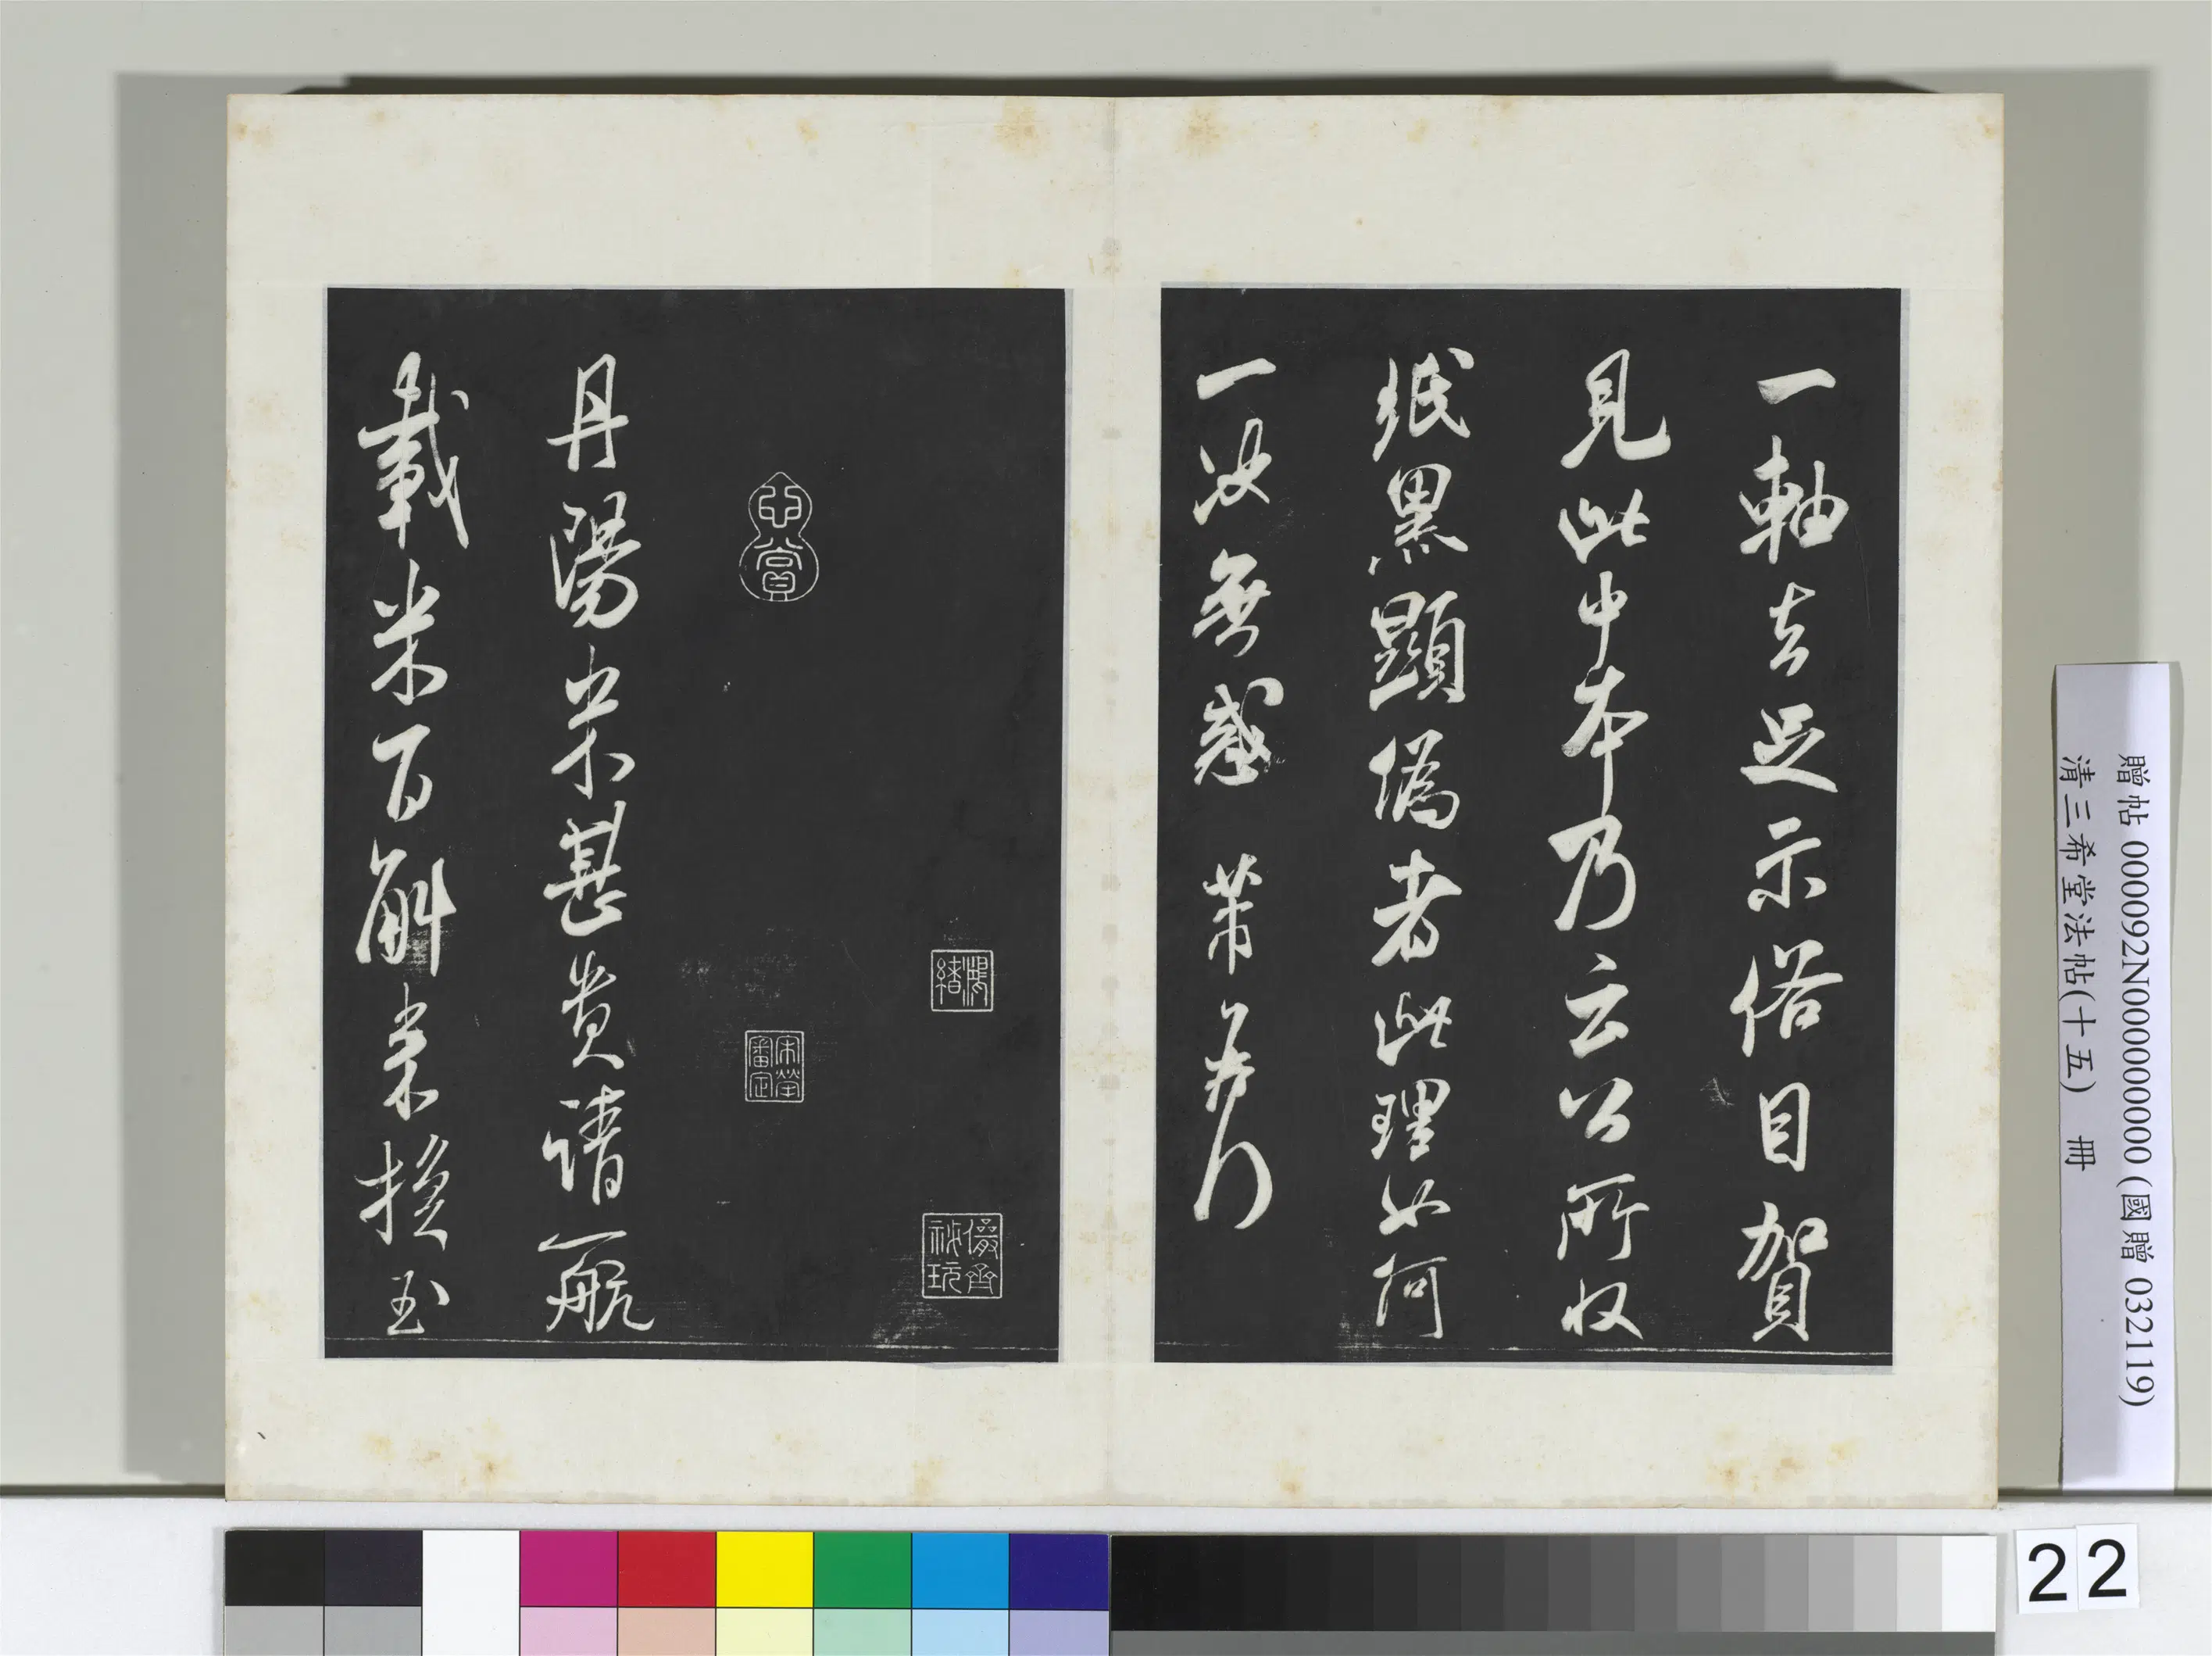 一軸去足示俗目賀
見此中本乃云公所收
紙黑顯偽者此理如何
一決無惑 芾頓首
鴻緒
儼齋
祕玩
賞
宋犖
審定
丹陽米甚貴請一航
載米百斛來換玉
贈帖 000092N000000000 (國贈 032119)
清三希堂法帖(十五) 冊
22